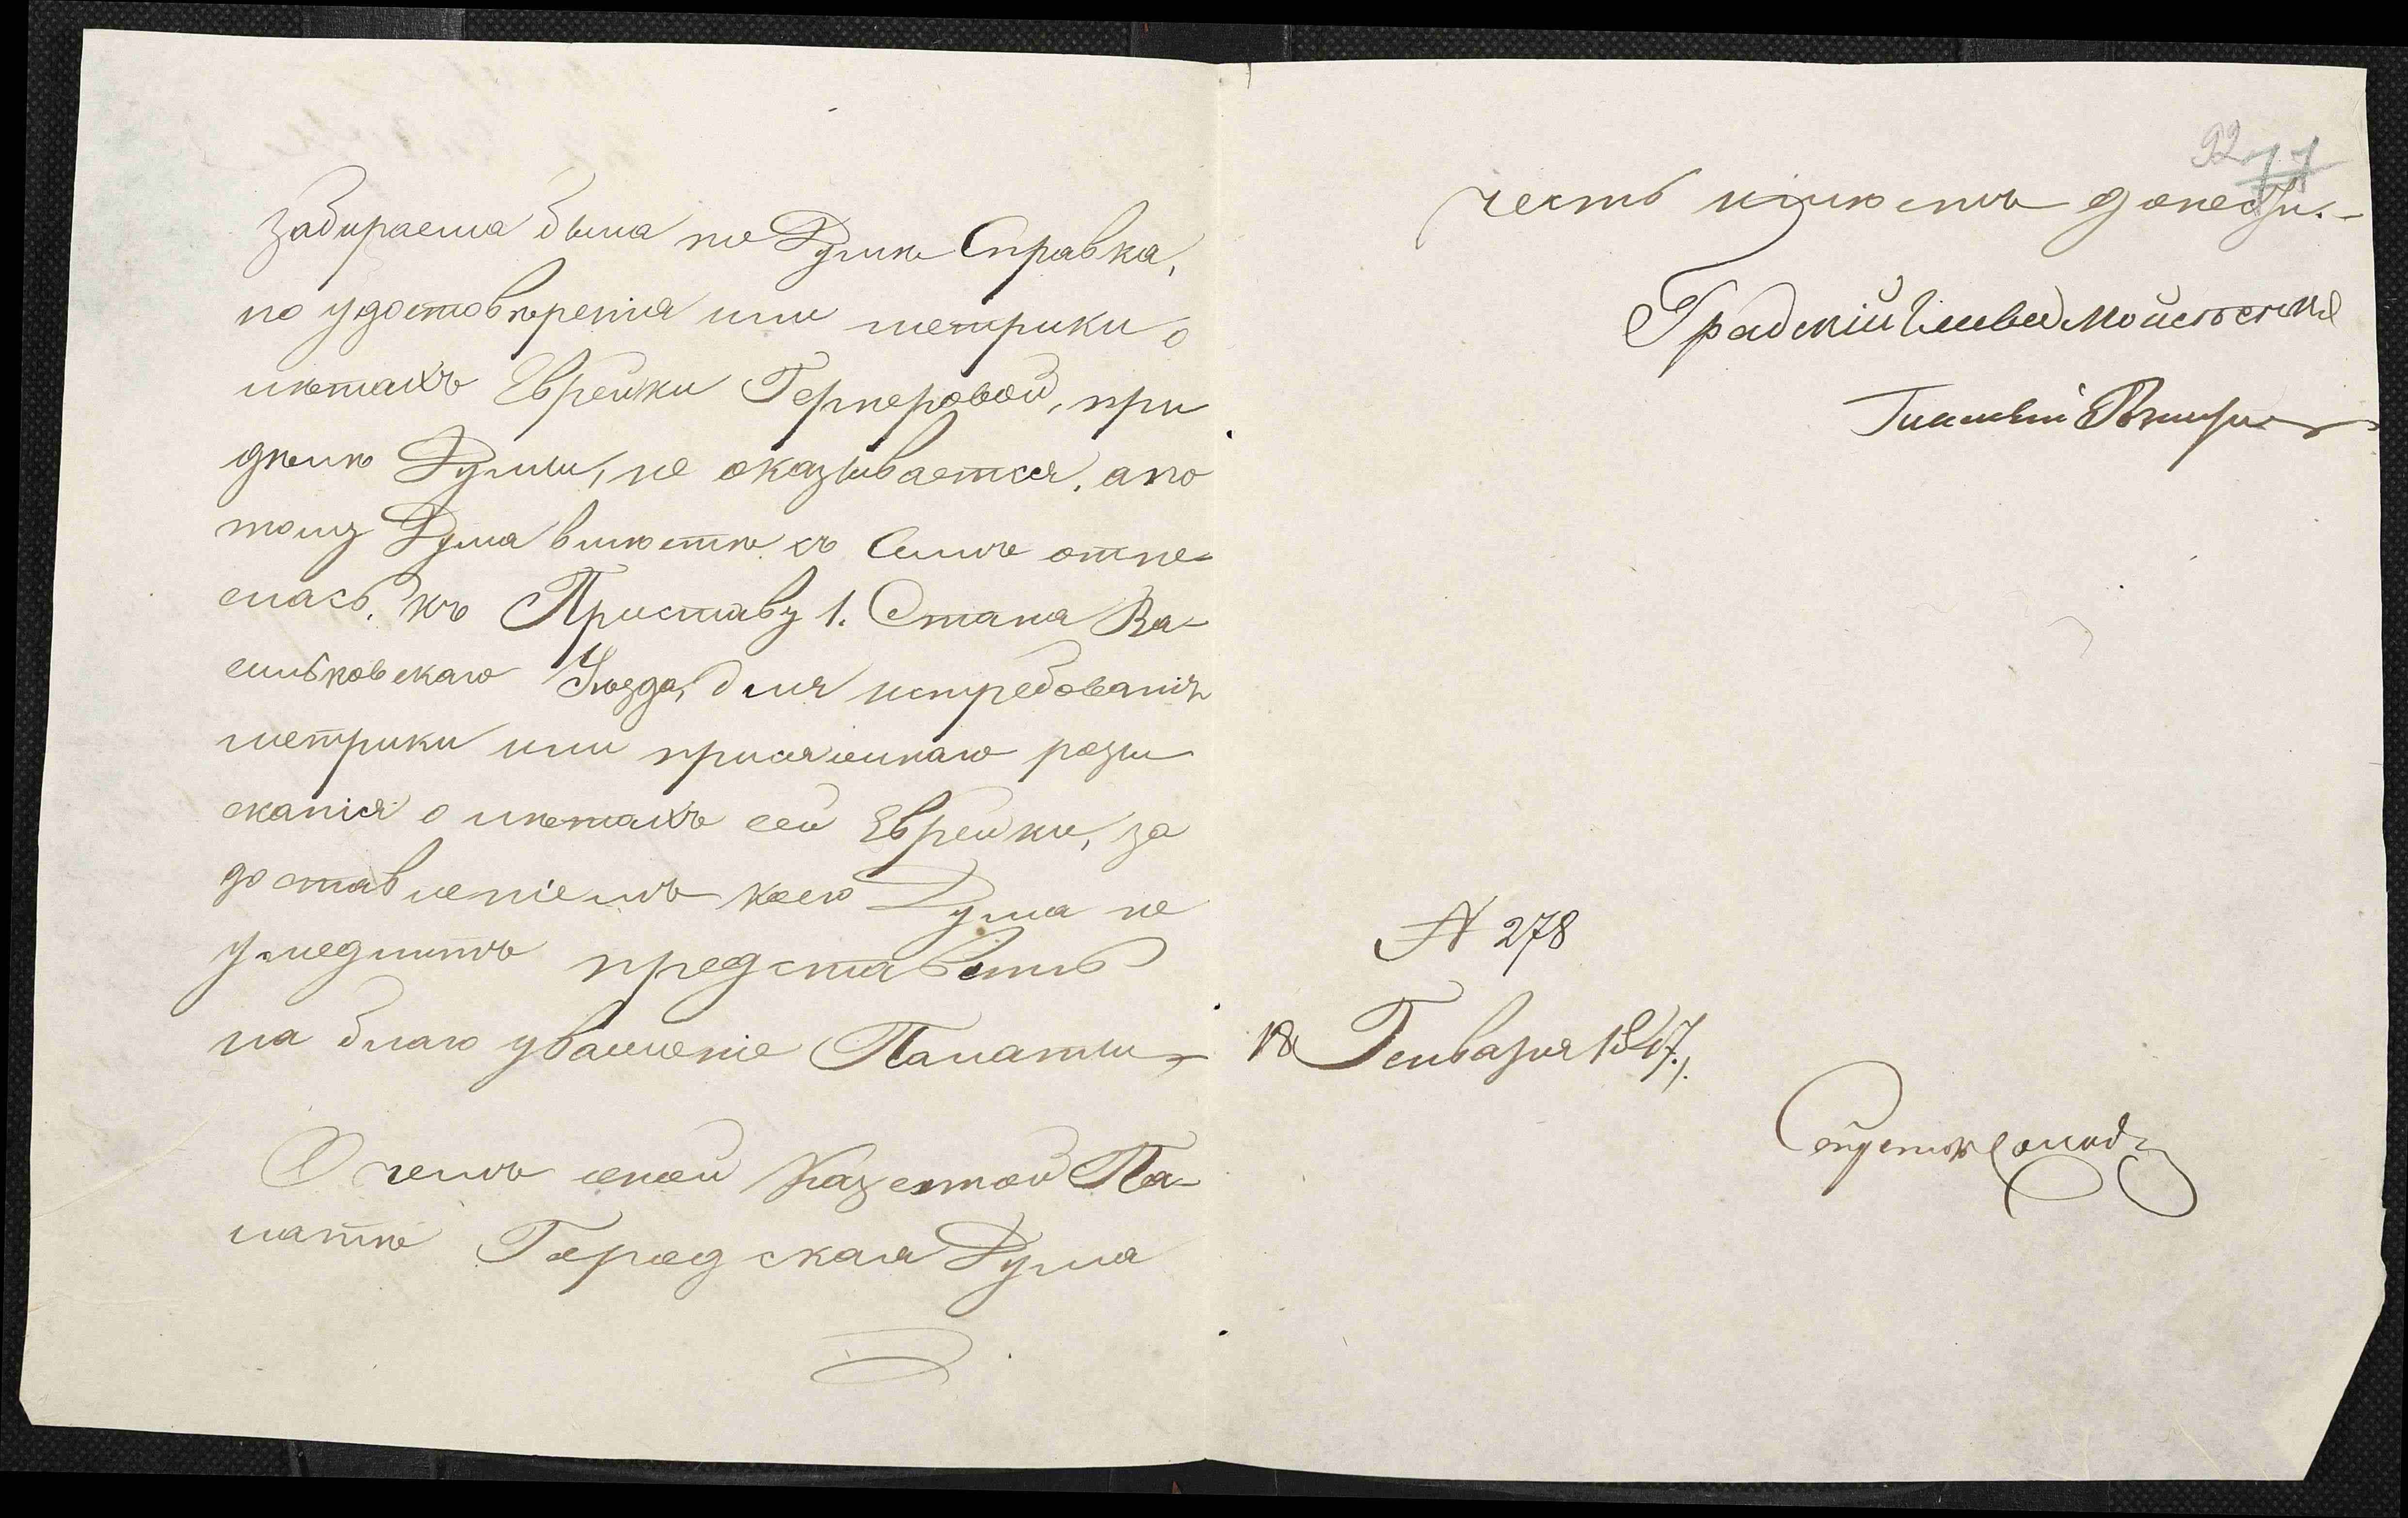 забираема была по Думѣ Справка,
но удостовѣренія или метрики о
лѣтахъ Еврейки Гернеровой, при
дѣлѣ Думы, не оказывается, а по
тому Дума вмѣстѣ съ Симъ отне-
слась къ Приставу 1. Стана Ва-
сильковскаго Уѣзда, для истребованія
метрики или присяжнаго розы
сканія о лѣтахъ сей Еврейки, за
доставленіемъ коего Дума не
умедлитъ представить
на благоуваженіе Палаты,
О чемъ оной Казенной Па-
латѣ Городская Дума
92 77
честь имѣетъ донести.-
Градскій Глава
Гласный
N 278
18 Генваря 1847.